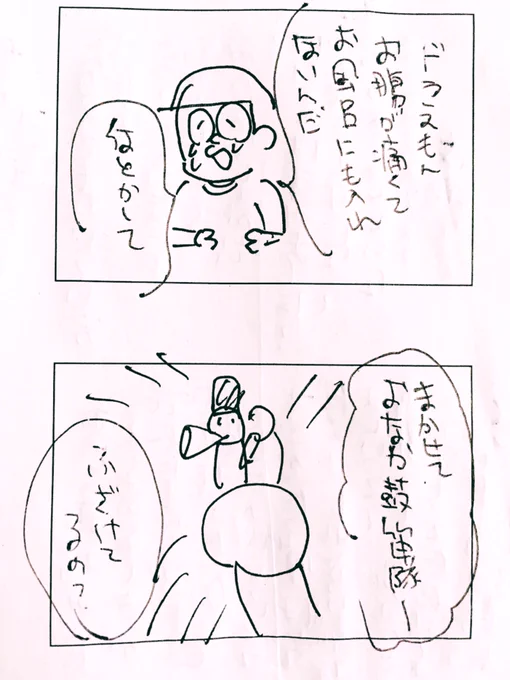 ドラえもん
お腹が痛くて
お風呂にも入れ
ないんだ
何とかして
まかせて
おなか鼓笛隊ー
ふざけて
るの?